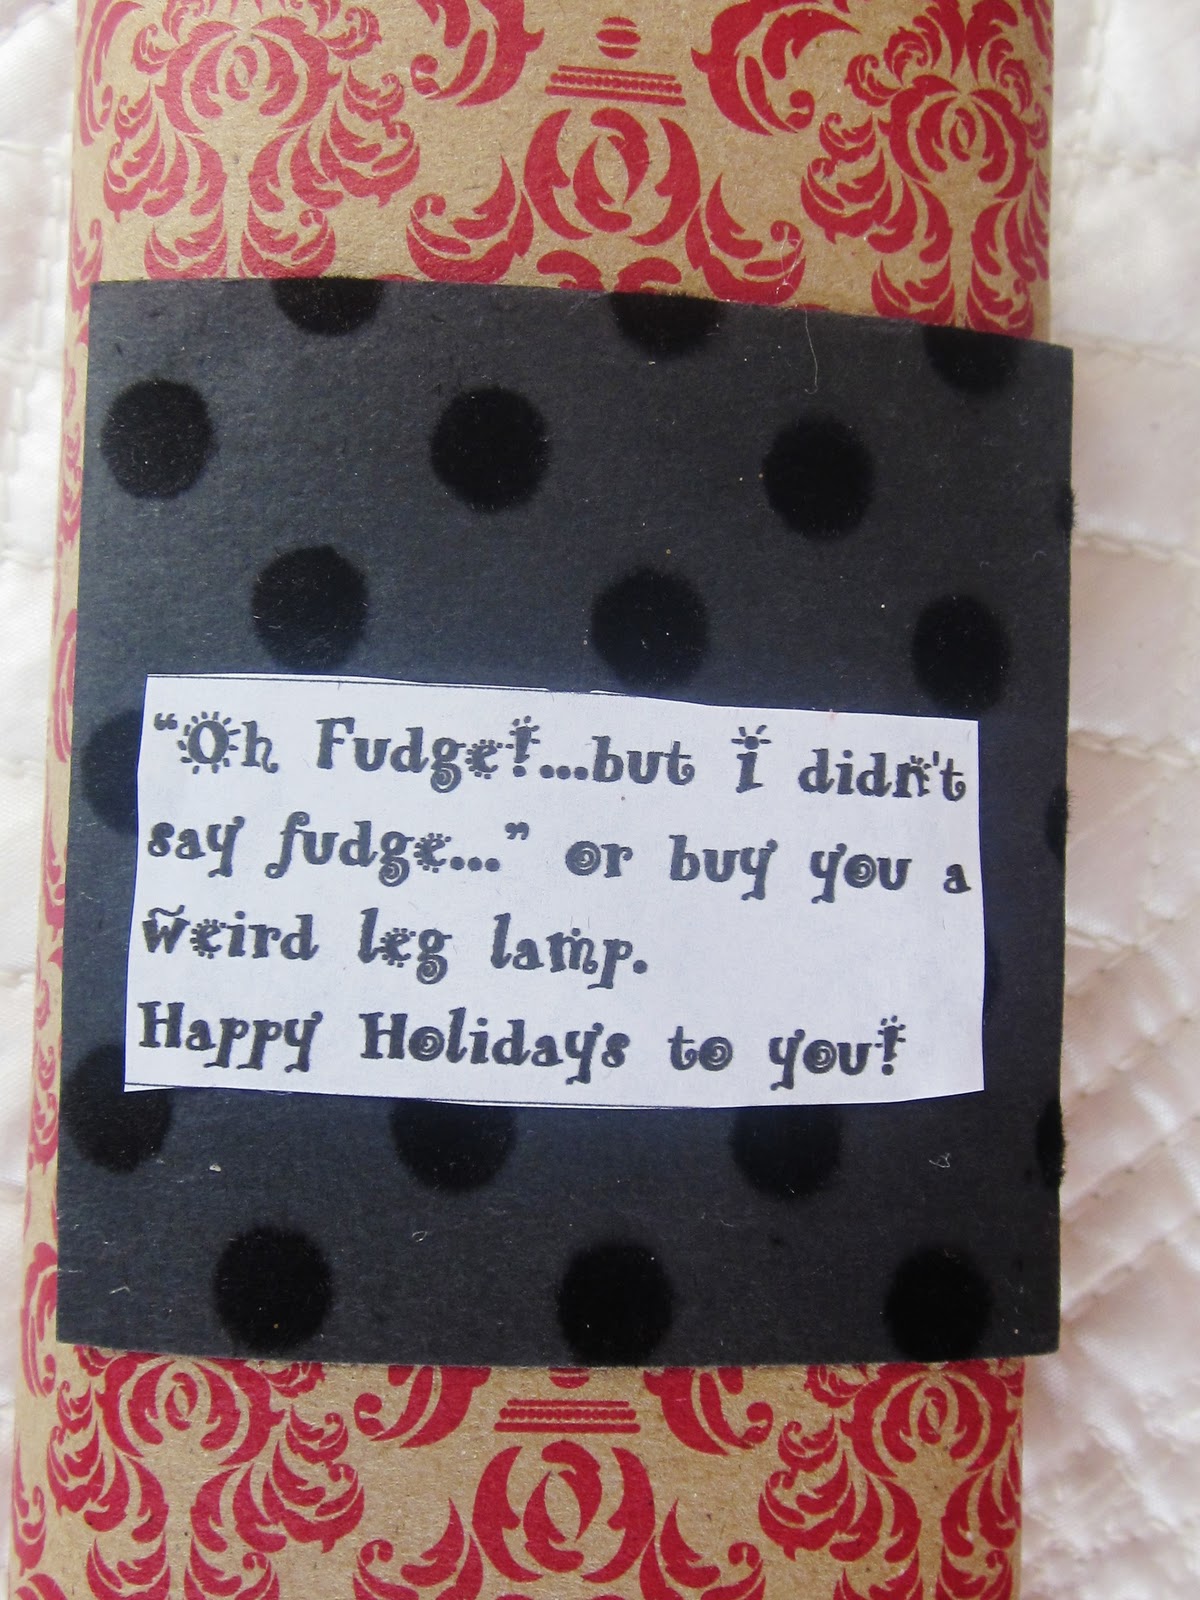 “Oh Fudge!...but i didn't
say fudge...” or buy you a
weird leg lamp.
Happy Holidays to you!